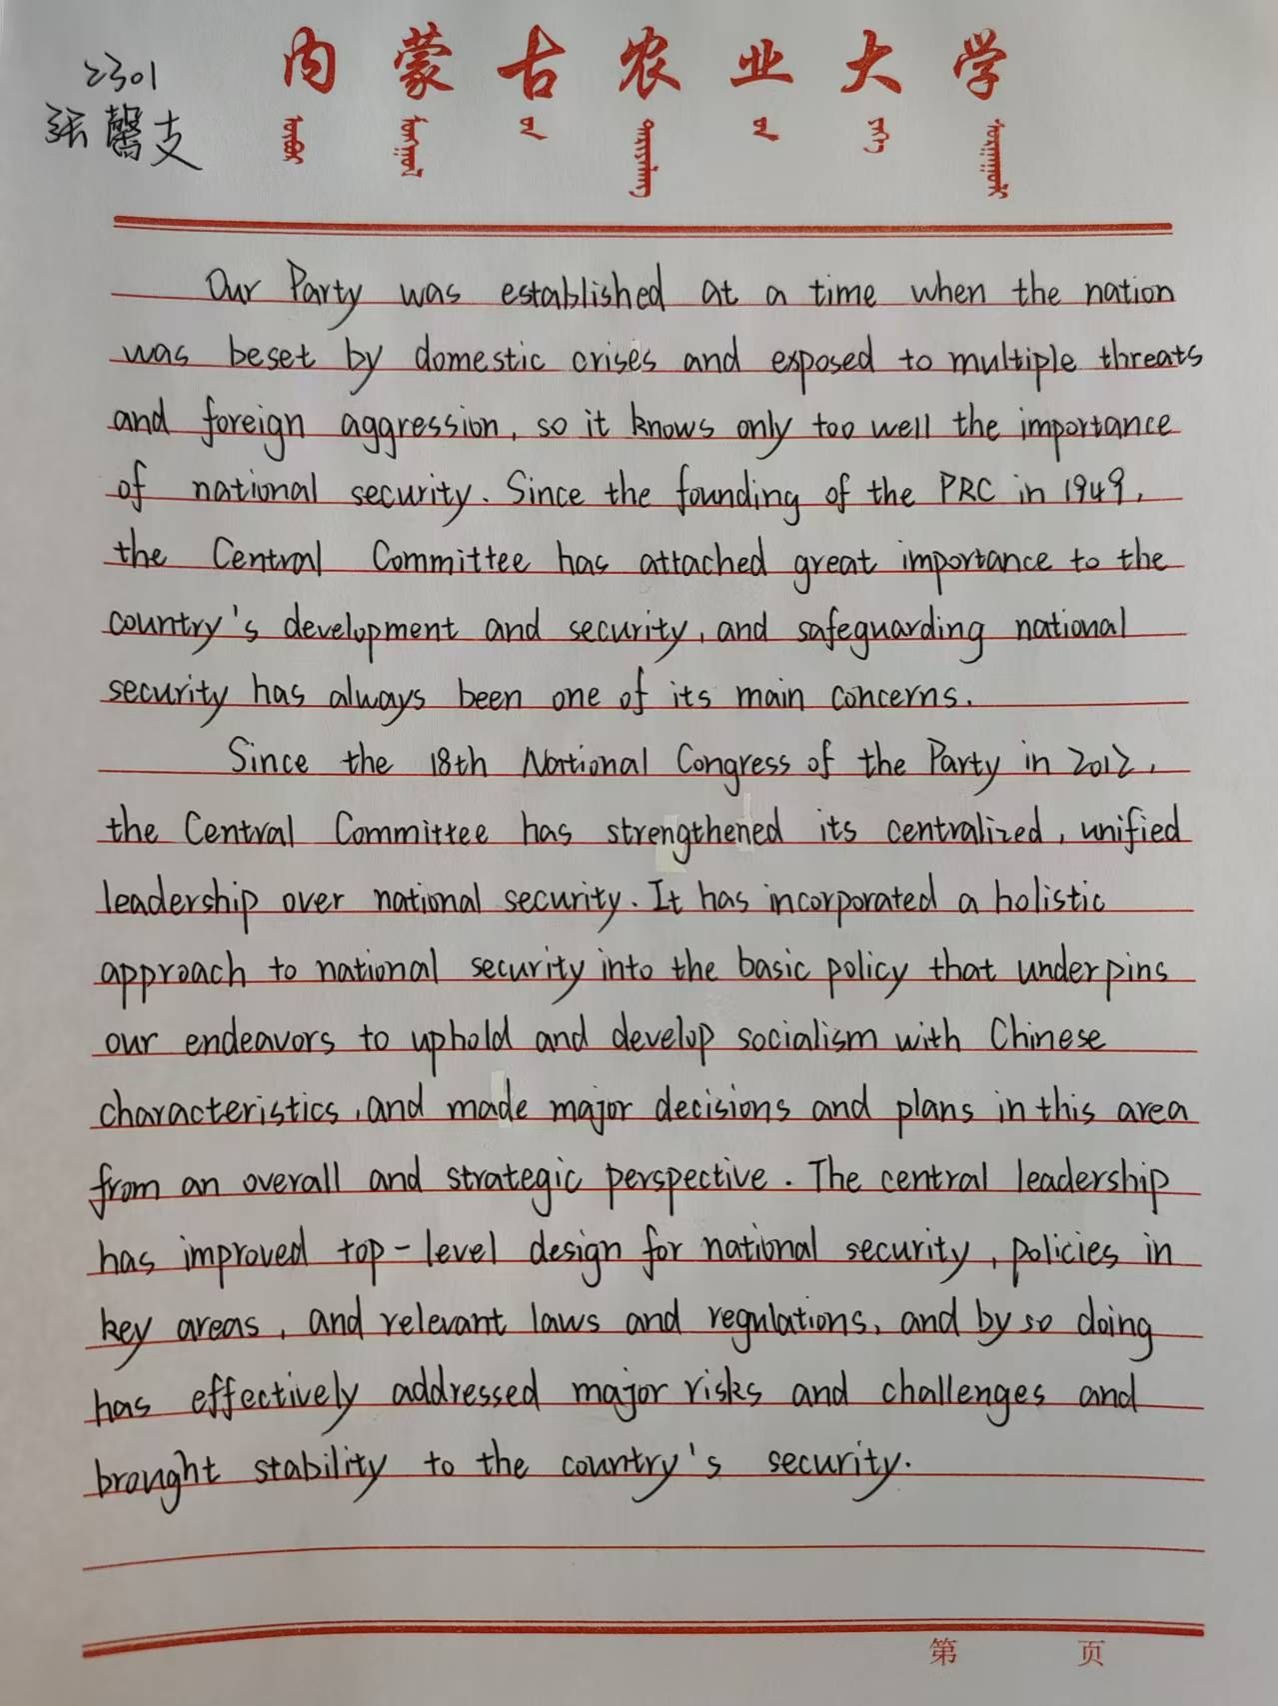 2301
张馨支
内蒙古农业大学
Our Party was established at a time when the nation
was beset by domestic crises and exposed to multiple threats
and foreign aggression, so it knows only too well the importance
of national security. Since the founding of the PRC in 1949,
the Central Committee has attached great importance to the
country's development and security, and safeguarding national
security has always been one of its main concerns.
Since the 18th National Congress of the Party in 2012,
the Central Committee has strengthened its centralized, unified
leadership over national security. It has incorporated a holistic
approach to national security into the basic policy that underpins
our endeavors to uphold and develop socialism with Chinese
characteristics, and made major decisions and plans in this area
from an overall and strategic perspective. The central leadership
has improved top-level design for national security, policies in
key areas, and relevant laws and regulations, and by so doing
has effectively addressed major risks and challenges and
brought stability to the country's security.
第 页